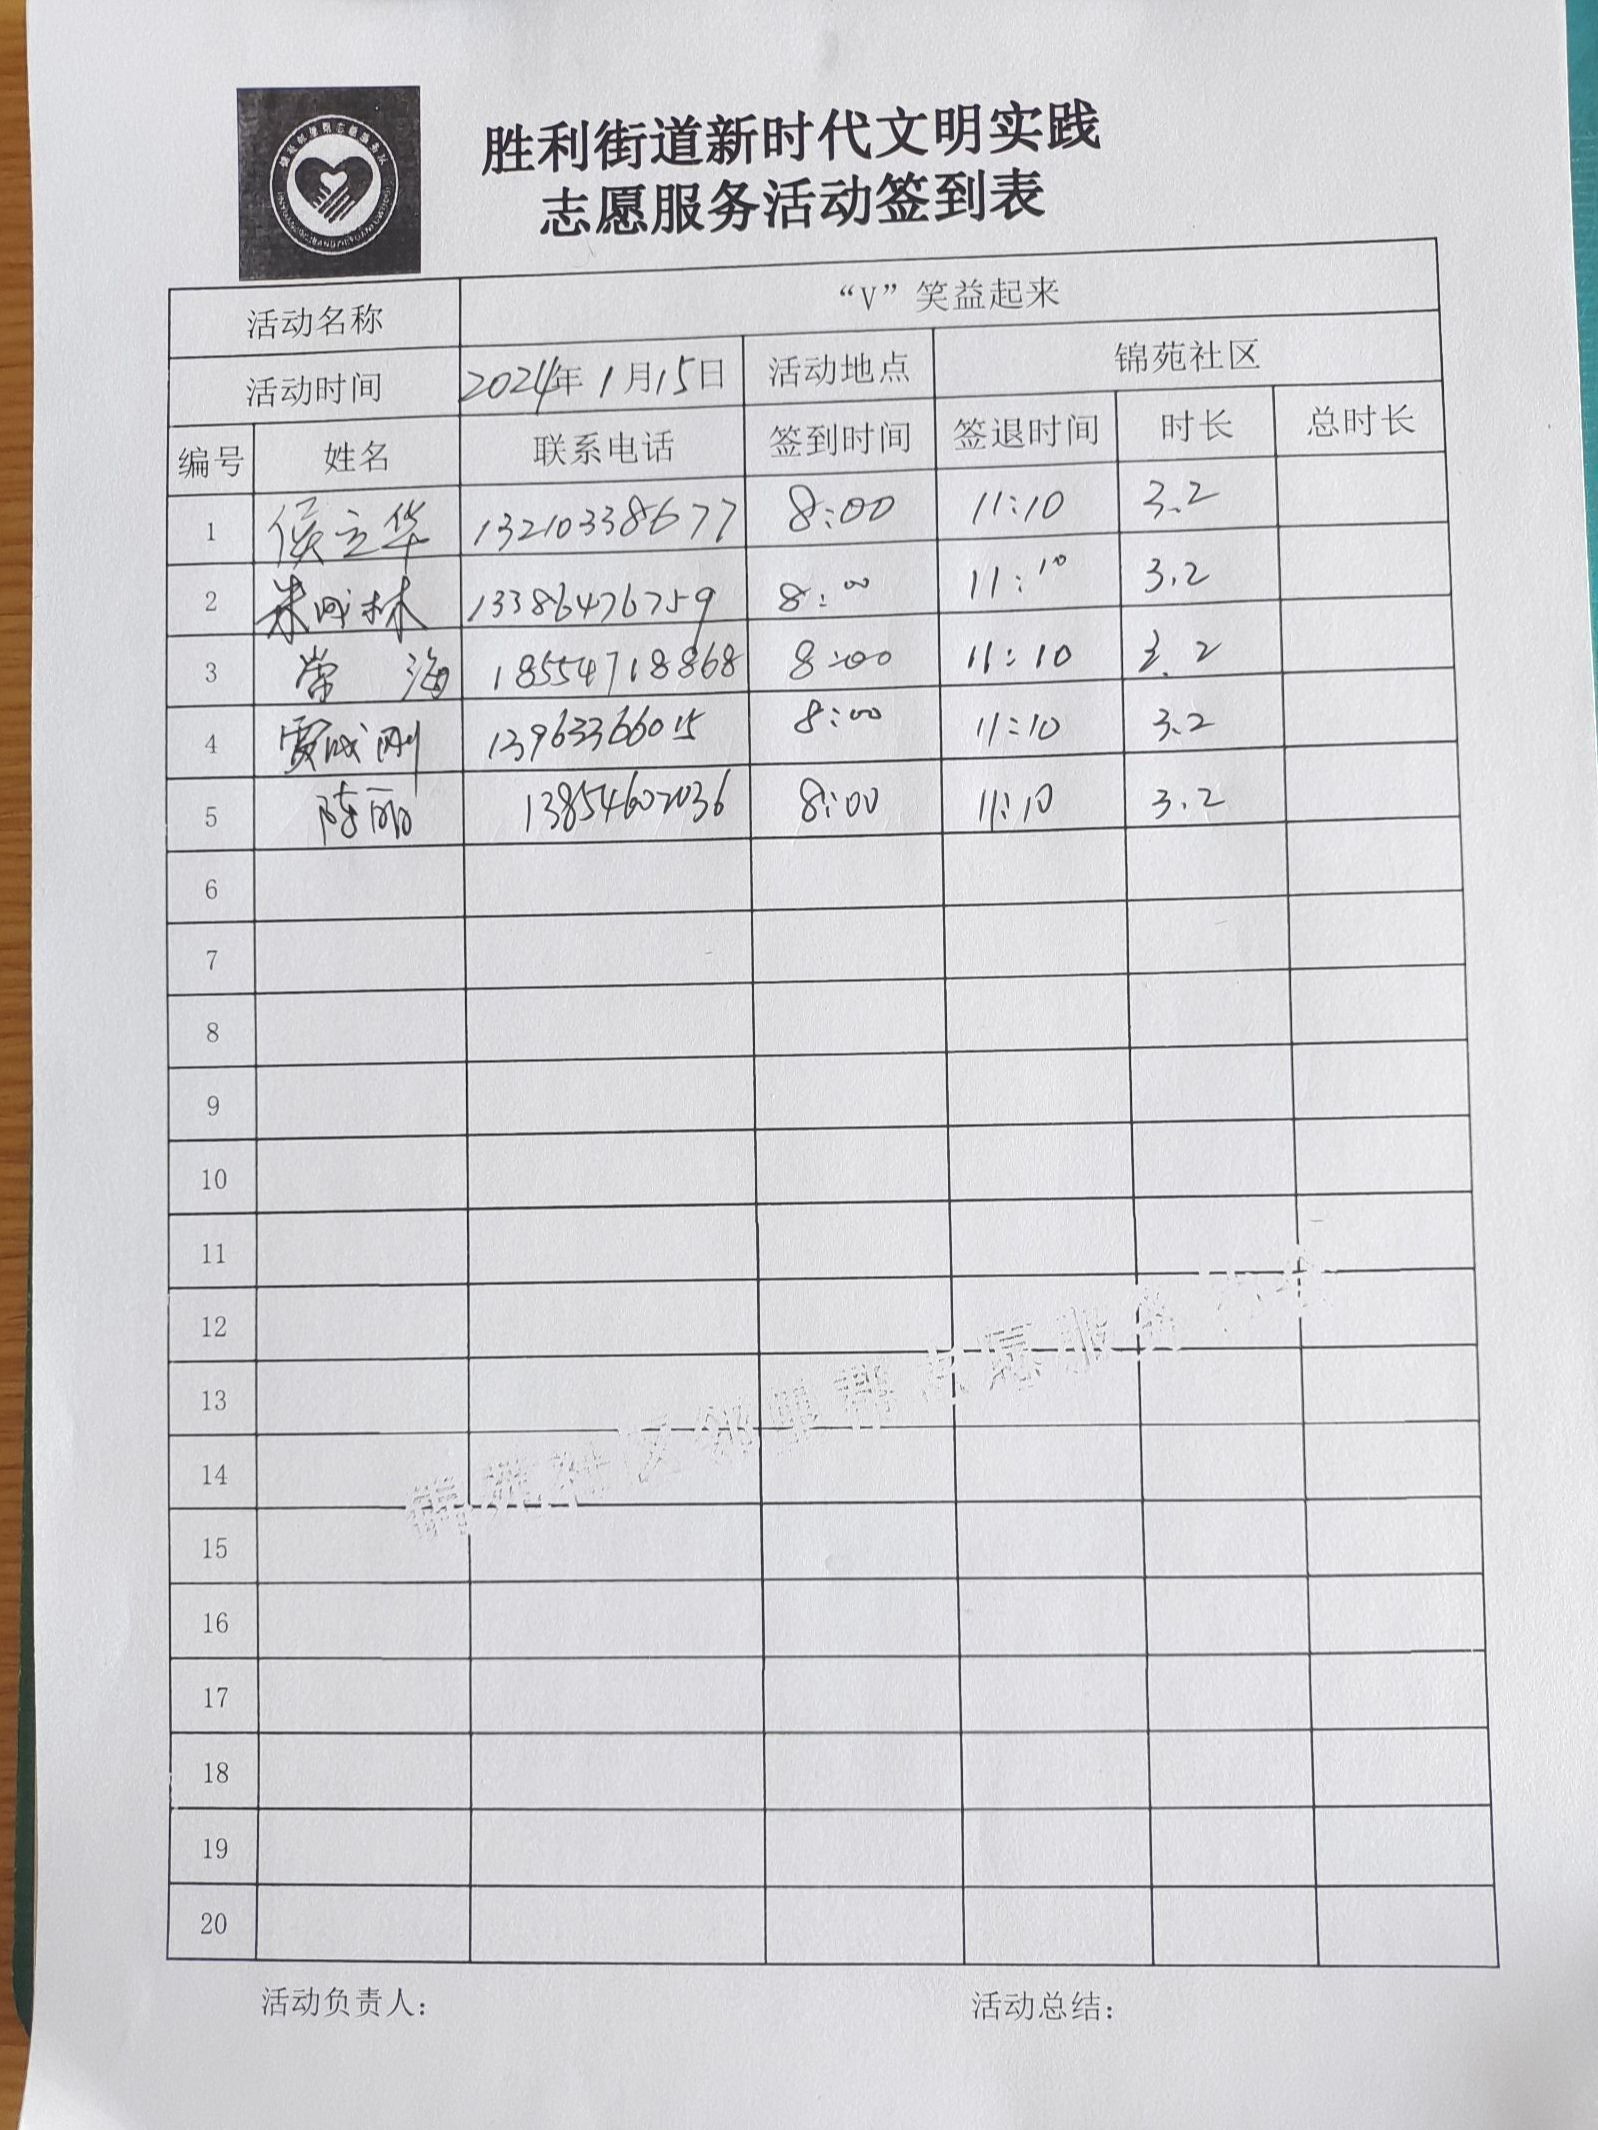 胜利街道新时代文明实践
志愿服务活动签到表
活动名称 “V”笑益起来
活动时间 2024年1月15日 活动地点 锦苑社区
编号 姓名 联系电话 签到时间 签退时间 时长 总时长
1 侯立华 13210338677 8:00 11:10 3.2
2 朱成林 13386476759 8:00 11:10 3.2
3 常海 18554718868 8:00 11:10 3.2
4 贾成刚 13963366015 8:00 11:10 3.2
5 陈丽 13854602036 8:00 11:10 3.2
6
7
8
9
10
11
12
13
14
15
16
17
18
19
20
活动负责人: 活动总结: